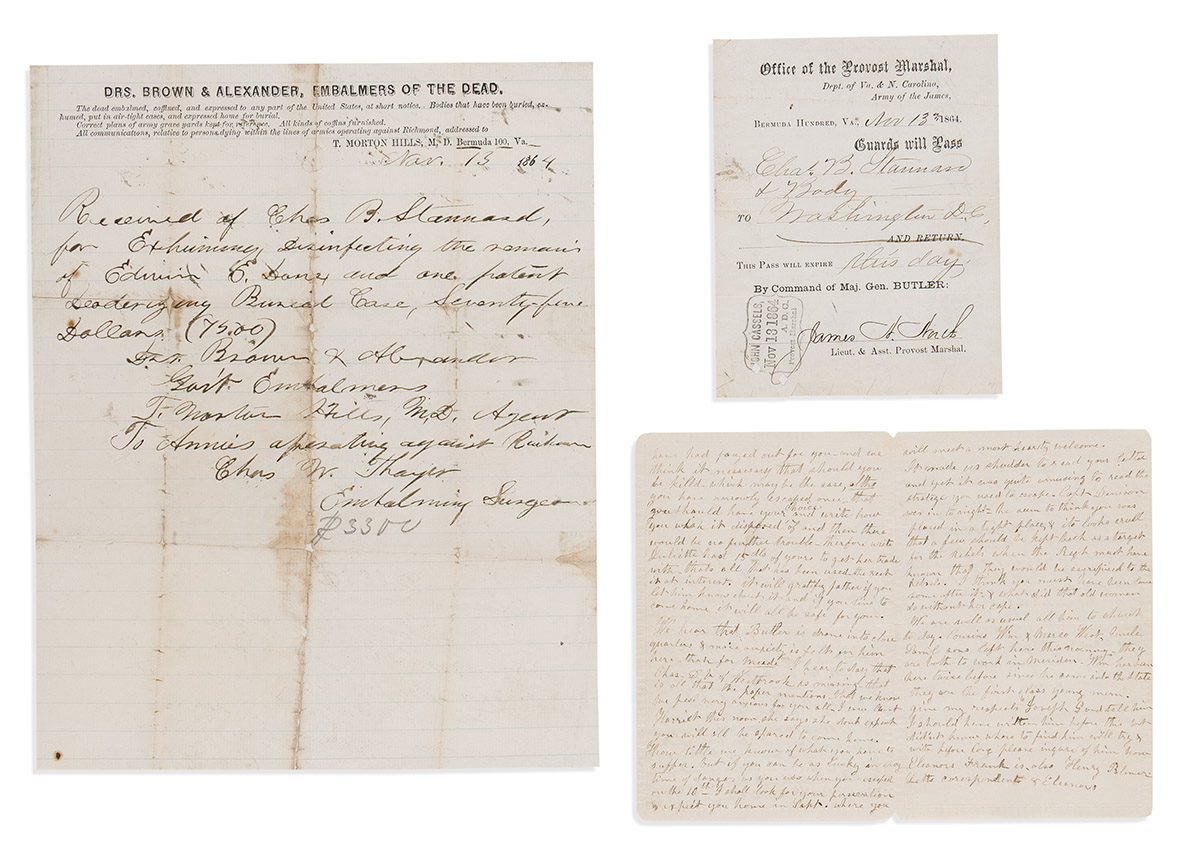 DRS. BROWN & ALEXANDER, EMBALMERS OF THE DEAD.
The dead embalmed, coffined, and expressed to any part of the United States, at short notice. Bodies that have been buried, ex-
humed, put in air-tight cases, and expressed home for burial.
Correct plans of army grave yards kept for reference. All kinds of coffins furnished.
All communications, relative to persons dying within the lines of armies operating against Richmond, addressed to
T. MORTON HILLS, M. D. Bermuda 100, Va.
Nov. 13 1864
Received of Chas B. Stannard,
for Exhuming Disinfecting the remains
of Edwin E. and one patent
Deoderizing Burial Case, Seventy-five
Dollars (75.00)
Brown & Alexander
Gov't Embalmers
T. Morton Hills, M.D. Agent
To Armies operating against
Chas W. Thayer
Embalming Surgeon
3300
Office of the Provost Marshal,
Dept. of Va. & N. Carolina,
Army of the James,
BERMUDA HUNDRED, VA., Nov 13 1864.
Guards will Pass
Chas. B. Stannard
& Body
TO Washington D.C.
AND RETURN.
THIS PASS WILL EXPIRE this day
By Command of Maj. Gen. BUTLER:
JOHN CASSELS,
Nov 13 1864
A. D. C.
Provost Marshal
James H.
Lieut. & Asst. Provost Marshal.
had payed out for you and we
think it necessary that should you
be killed which may be the case,
you have narrowly escaped once, that
you should have your choice and write how
you wish it disposed of and then there
would be no further trouble therefore write
of yours to get her
with thats all that has been used the rest
is at interest. it will gratify father if you
let him know about it and if you live to
come home it will all be safe for you.
We hear that Butler is drove into close
quarters & more anxiety is felt for him
here than for Meade. I hear to day that
Chas. Westbrook is missing that
is all that the paper mentions,
she feels very anxious for you all. I saw Aunt
Harriet this noon, she says she dont expect
you will all be spared to come home.
How little we know of what you have to
suffer. but if you can be as lucky in every
time of danger as you was when you escaped
on the 10th I shall look for your
& expect you home in Sept. where you
will meet a most hearty welcome.
It made us shudder to read your letter
and yet it was quite amusing to read the
you used to escape. Capt. Dennison
was in to night he seem to think you was
placed in a tight place, & it looks cruel
that a few should be kept back as a target
for the rebels when the Regt must have
known that they would be sacrificed to the
I think you must have been
home after it & what did that old woman
do without her cape.
We are well as usual all him to church
to day. Cousins Wm & West, Uncle
sons left here this evening they
are both to work in Meriden. Wm has been
here twice before since he came into the State
they are the first class young men.
give my respects Joseph & tell him
I should have written him before this but
didn't know where to find him will try &
write before long please inquire of him how
Eleanors Frank is, also Henry
& Eleanors